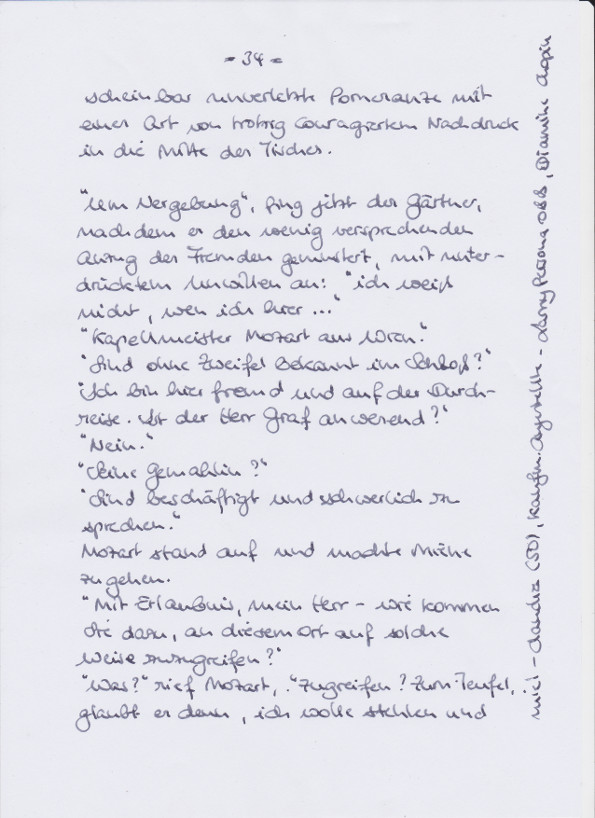 = 34 =
scheinbar unverletzte Pomeranze mit
einer Art von trotzig couragiertem Nachdruck
in die Mitte des Tisches.
"Um Vergebung", fing jetzt der Gärtner,
nachdem er den wenig versprechenden
Anzug des Fremden gemustert, mit unter-
drücktem Unwillen an: "ich weiß
nicht, wen ich hier ..."
"Kapellmeister Mozart aus Wien."
"Sind ohne Zweifel bekannt im Schloß?"
"Ich bin hier fremd und auf der Durch-
reise. Ist der Herr Graf anwesend?"
"Nein."
"Seine Gemahlin?"
"Sind beschäftigt und schwerlich zu
sprechen."
Mozart stand auf und machte Miene
zu gehen.
"Mit Erlaubnis, mein Herr - wie kommen
Sie dazu, an diesem Ort auf solche
Weise zuzugreifen?"
"Was?" rief Mozart, "Zugreifen? Zum Teufel,
glaubt er denn, ich wolle stehlen und
- Claudia (50), kaufm. Angestellte - Persona, Diamine Chopin